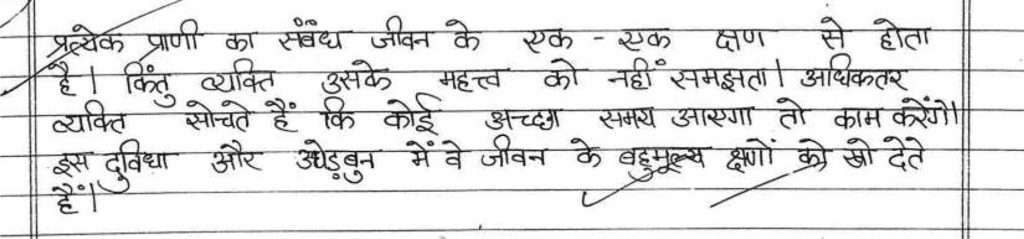 प्रत्येक प्राणी का संबंध जीवन के एक - एक क्षण से होता
है। किंतु व्यक्ति उसके महत्त्व को नहीं समझता। अधिकतर
व्यक्ति सोचते हैं कि कोई अच्छा समय आएगा तो काम करेंगे।
इस दुविधा और उधेड़बुन में वे जीवन के बहुमूल्य क्षणों को खो देते
हैं।